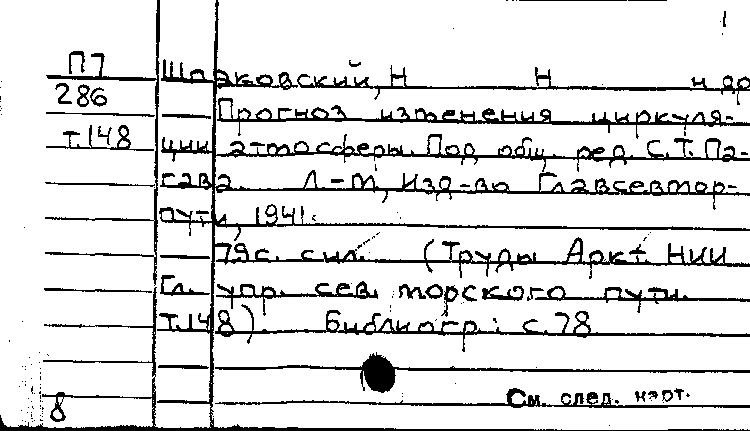 П7 Шпаковский, Н Н и др
286 Прогноз изменения циркуля-
т.148 ции атмосферы. Под общ. ред. С.Т. Па-
гава. Л-м, Изд-во Главсевмор-
пути, 1941.
79с. сил. (Труды Аркт. НИИ
Гл. упр. сев. морского пути.
Т.148). Библиогр.: с.78
См. след. карт.
8